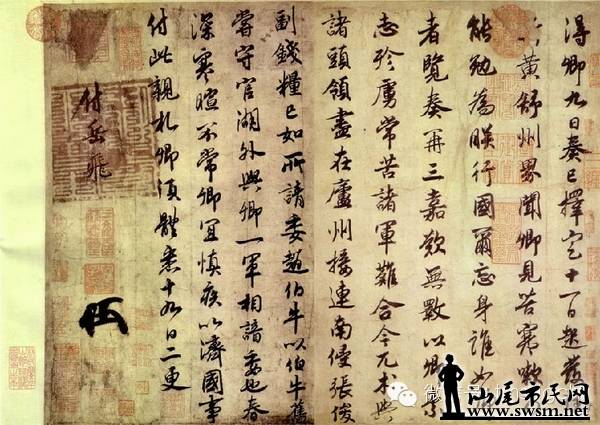 得卿九日奏已擇定十一日起發
黃舒州界聞卿見苦寒嗽
能勉為朕行國爾忘身誰如
者覽奏再三嘉歎無斁以卿素
志殄虜常苦諸軍難合今兀朮與
諸頭領盡在廬州接連南侵張俊
副錢糧已如所請委趙伯牛以伯牛舊
嘗守官湖外與卿一軍相諳委也春
深寒暄不常卿宜慎疾以濟國事
付此親札卿須體悉十九日二更
付岳飛
汕尾市民网
www.swsm.net